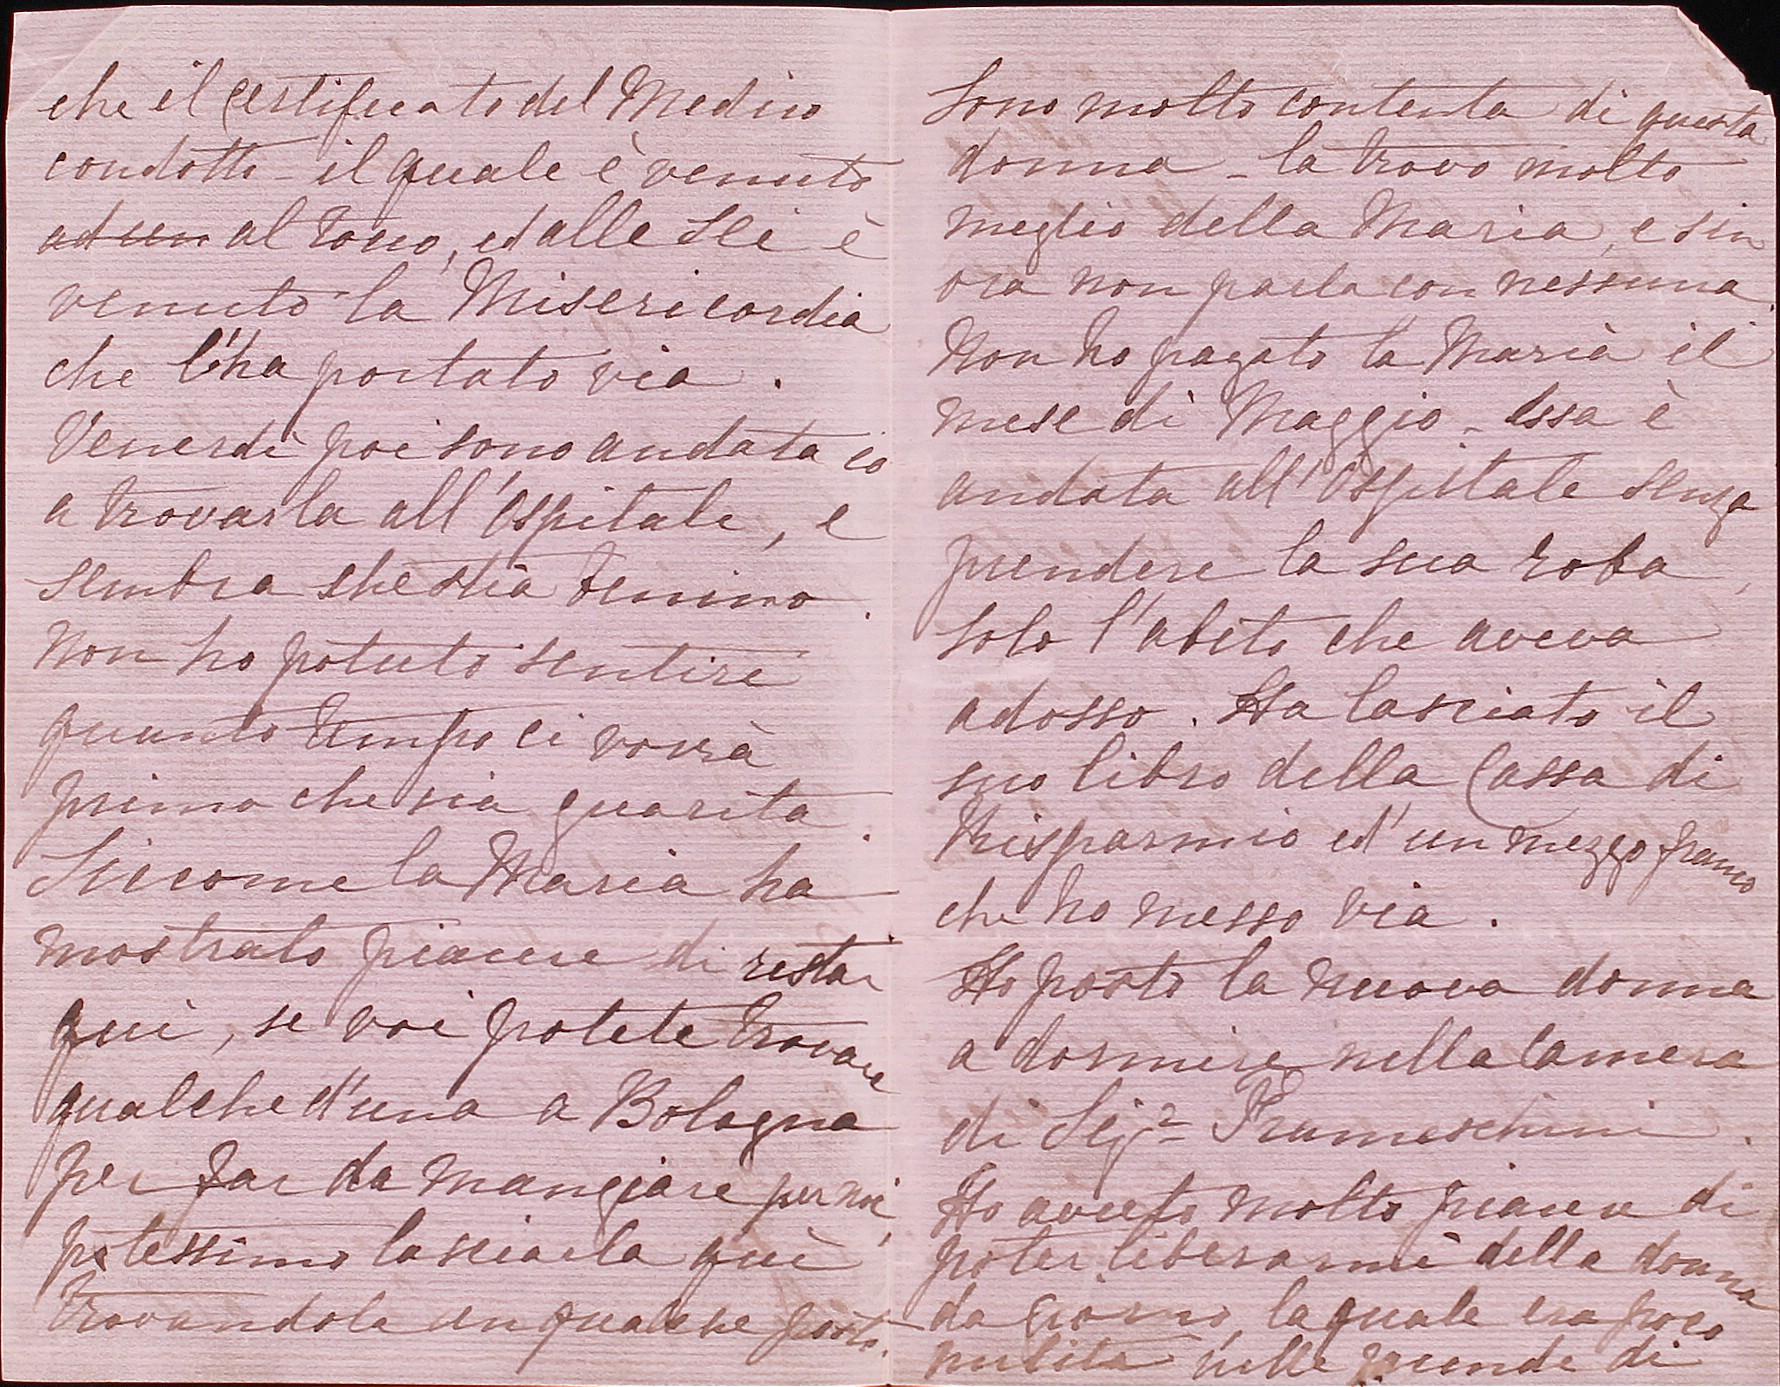 che il Certificato del Medico
condotto - il quale è venuto
ad un al tocco, ed alle Sei è
venuto la Misericordia
che l'ha portato via.
Venerdì poi sono andata io
a trovarla all'Ospitale, e
sembra che stia benino.
Non ho potuto sentire
quanto tempo ci vorrà
prima che sia guarita.
Siccome la Maria ha
mostrato piacere di restar
qui, se voi potete trovare
qualche d'una a Bologna
per far da mangiare per noi,
potessimo lasciarla quì
trovandole un qualche posto.
Sono molto contenta di questa
donna - la trovo molto
meglio della Maria, e sin
ora non parla con nessuna.
Non ho pagato la Maria il
mese di Maggio - Essa è
andata all'Ospitale senza
prendere la sua roba,
solo l'abito che aveva
adosso. Ha lasciato il
suo libro della Cassa di
Risparmio ed' un mezzo franco
che ho messo via.
Ho posto la nuova donna
a dormire nella Camera
di Sigra
Ho avuto molto piacere di
poter liberarmi della donna
da giorno, la quale era poco
pulita nelle facende di